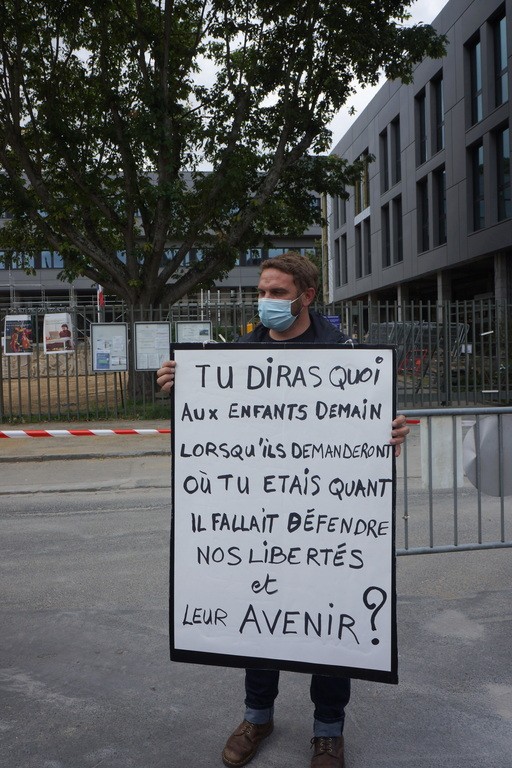 TU DIRAS QUOI
AUX ENFANTS DEMAIN
LORSQU'ILS DEMANDERONT
OÙ TU ETAIS QUANT
IL FALLAIT DÉFENDRE
NOS LIBERTÉS
et
LEUR AVENIR ?